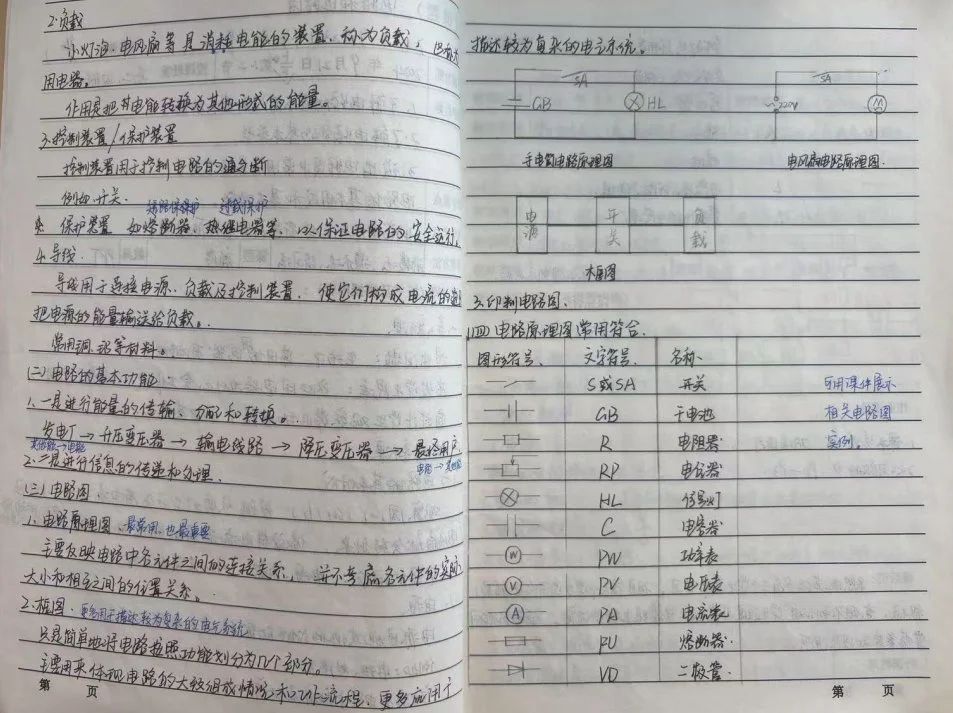 2.负载
小灯泡、电风扇等是消耗电能的装置,称为负载,
用电器。
作用是把电能转换为其他形式的能量。
3.控制装置/保护装置
控制装置用于控制电路的通与断
例如开关. 短路保护 过载保护
保护装置 如熔断器、热继电器等,以保证电路的安全运行。
4.导线.
导线用于连接电源、负载及控制装置,使它们构成电流的
把电源的能量输送给负载。
常用铜、铝等材料。
(二)电路的基本功能.
1、一是进行能量的传输、分配和转换。
发电厂→升压变压器→输电线路→降压变压器→最终用户
其他能→电能 电能→其他能
2.二是进行信息的传递和处理.
(三)电路图.
1、电路原理图.最常用,也最重要
主要反映电路中各元件之间的连接关系,并不考虑各元件的实际
大小和相互之间的位置关系。
2.框图.更多用于描述较为复杂的电气系统
只是简单地将电路按照功能划分为几个部分。
主要用来体现电路的大致组成情况和工作流程,更多应用于
第 页
描述较为复杂的电气系统。
SA SA
GB HL 220V M
手电筒电路原理图 电风扇电路原理图.
电源 开关 负载
框图
3.印制电路图.
(四)电路原理图常用符合.
图形符号. 文字符号. 名称.
S或SA 开关 可用课件展示
GB 干电池 相关电路图
R 电阻器 实例。
RP 电位器
HL 信号灯
C 电容器
W PW 功率表
V PV 电压表
A PA 电流表
FU 熔断器.
VD 二极管
第 页